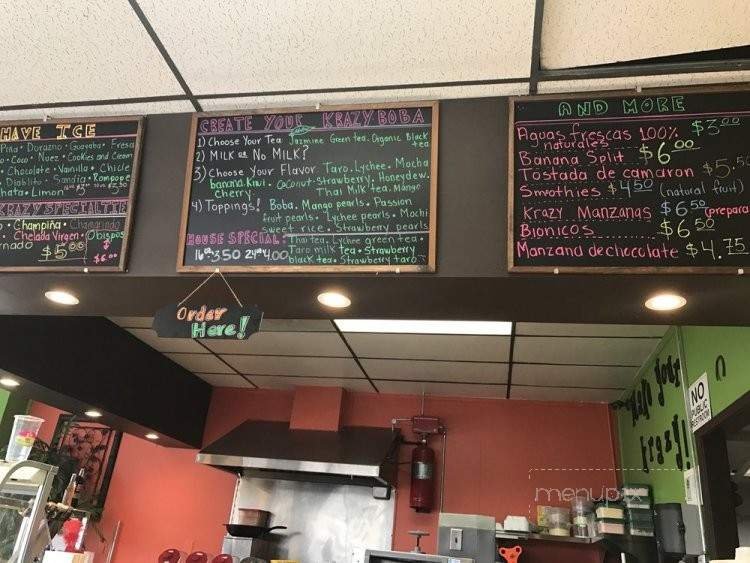 HAVE ICE
Piña • Durazno • Guayaba • Fresa
Coco • Nuez • Cookies and Cream
Chocolate • Vainilla • Chicle
Diablito • Sandia • Rompope
hata • Limon
KRAZY SPECIALTIE
Champiña • Chamarindo
Chelada Virgen • Obispos
rnado $5.00 $6.00
CREATE YOUR KRAZY BOBA
1) Choose Your Tea Jasmine Green tea. Organic Black tea
2) MILK or No MILK?
3) Choose your Flavor Taro. Lychee. Mocha
banana. Kiwi. Coconut. Strawberry. Honeydew.
Cherry. Thai Milk tea. Mango
4) Toppings! Boba. Mango pearls. Passion
fruit pearls. Lychee pearls. Mochi
sweet rice. Strawberry pearls.
HOUSE SPECIAL: Thai tea. Lychee green tea.
16oz 3.50 24oz 4.00 Taro milk tea. Strawberry
black tea. Strawberry taro
Order
Here!
AND MORE
Aguas frescas 100% naturales $3.00
Banana Split $6.00
Tostada de camaron $5.50
Smoothies $4.50 (natural fruit)
Krazy Manzanas $6.50 (prepara
Bionicos $6.50
Manzana de chocolate $4.75
NO
PUBLIC
RESTROOM
krazy!
menupix